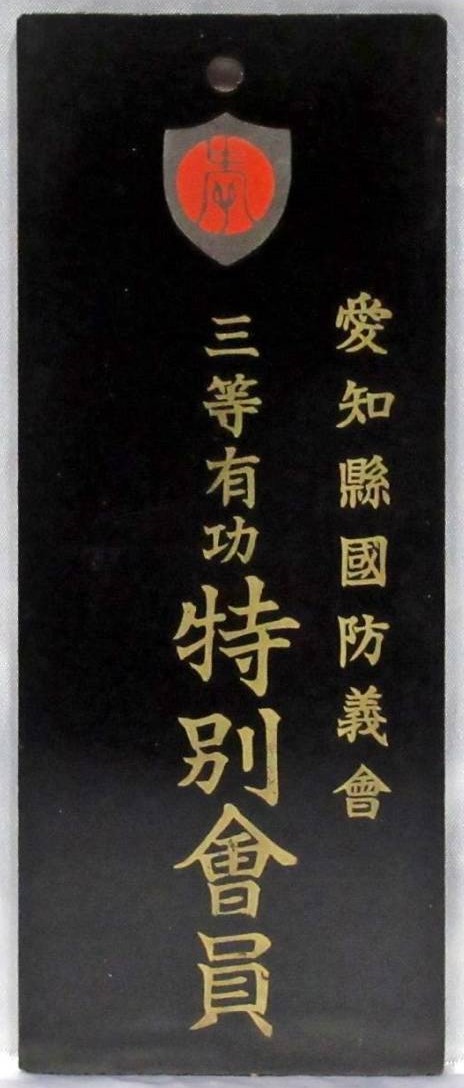 愛知縣國防義會
三等有功特別會員